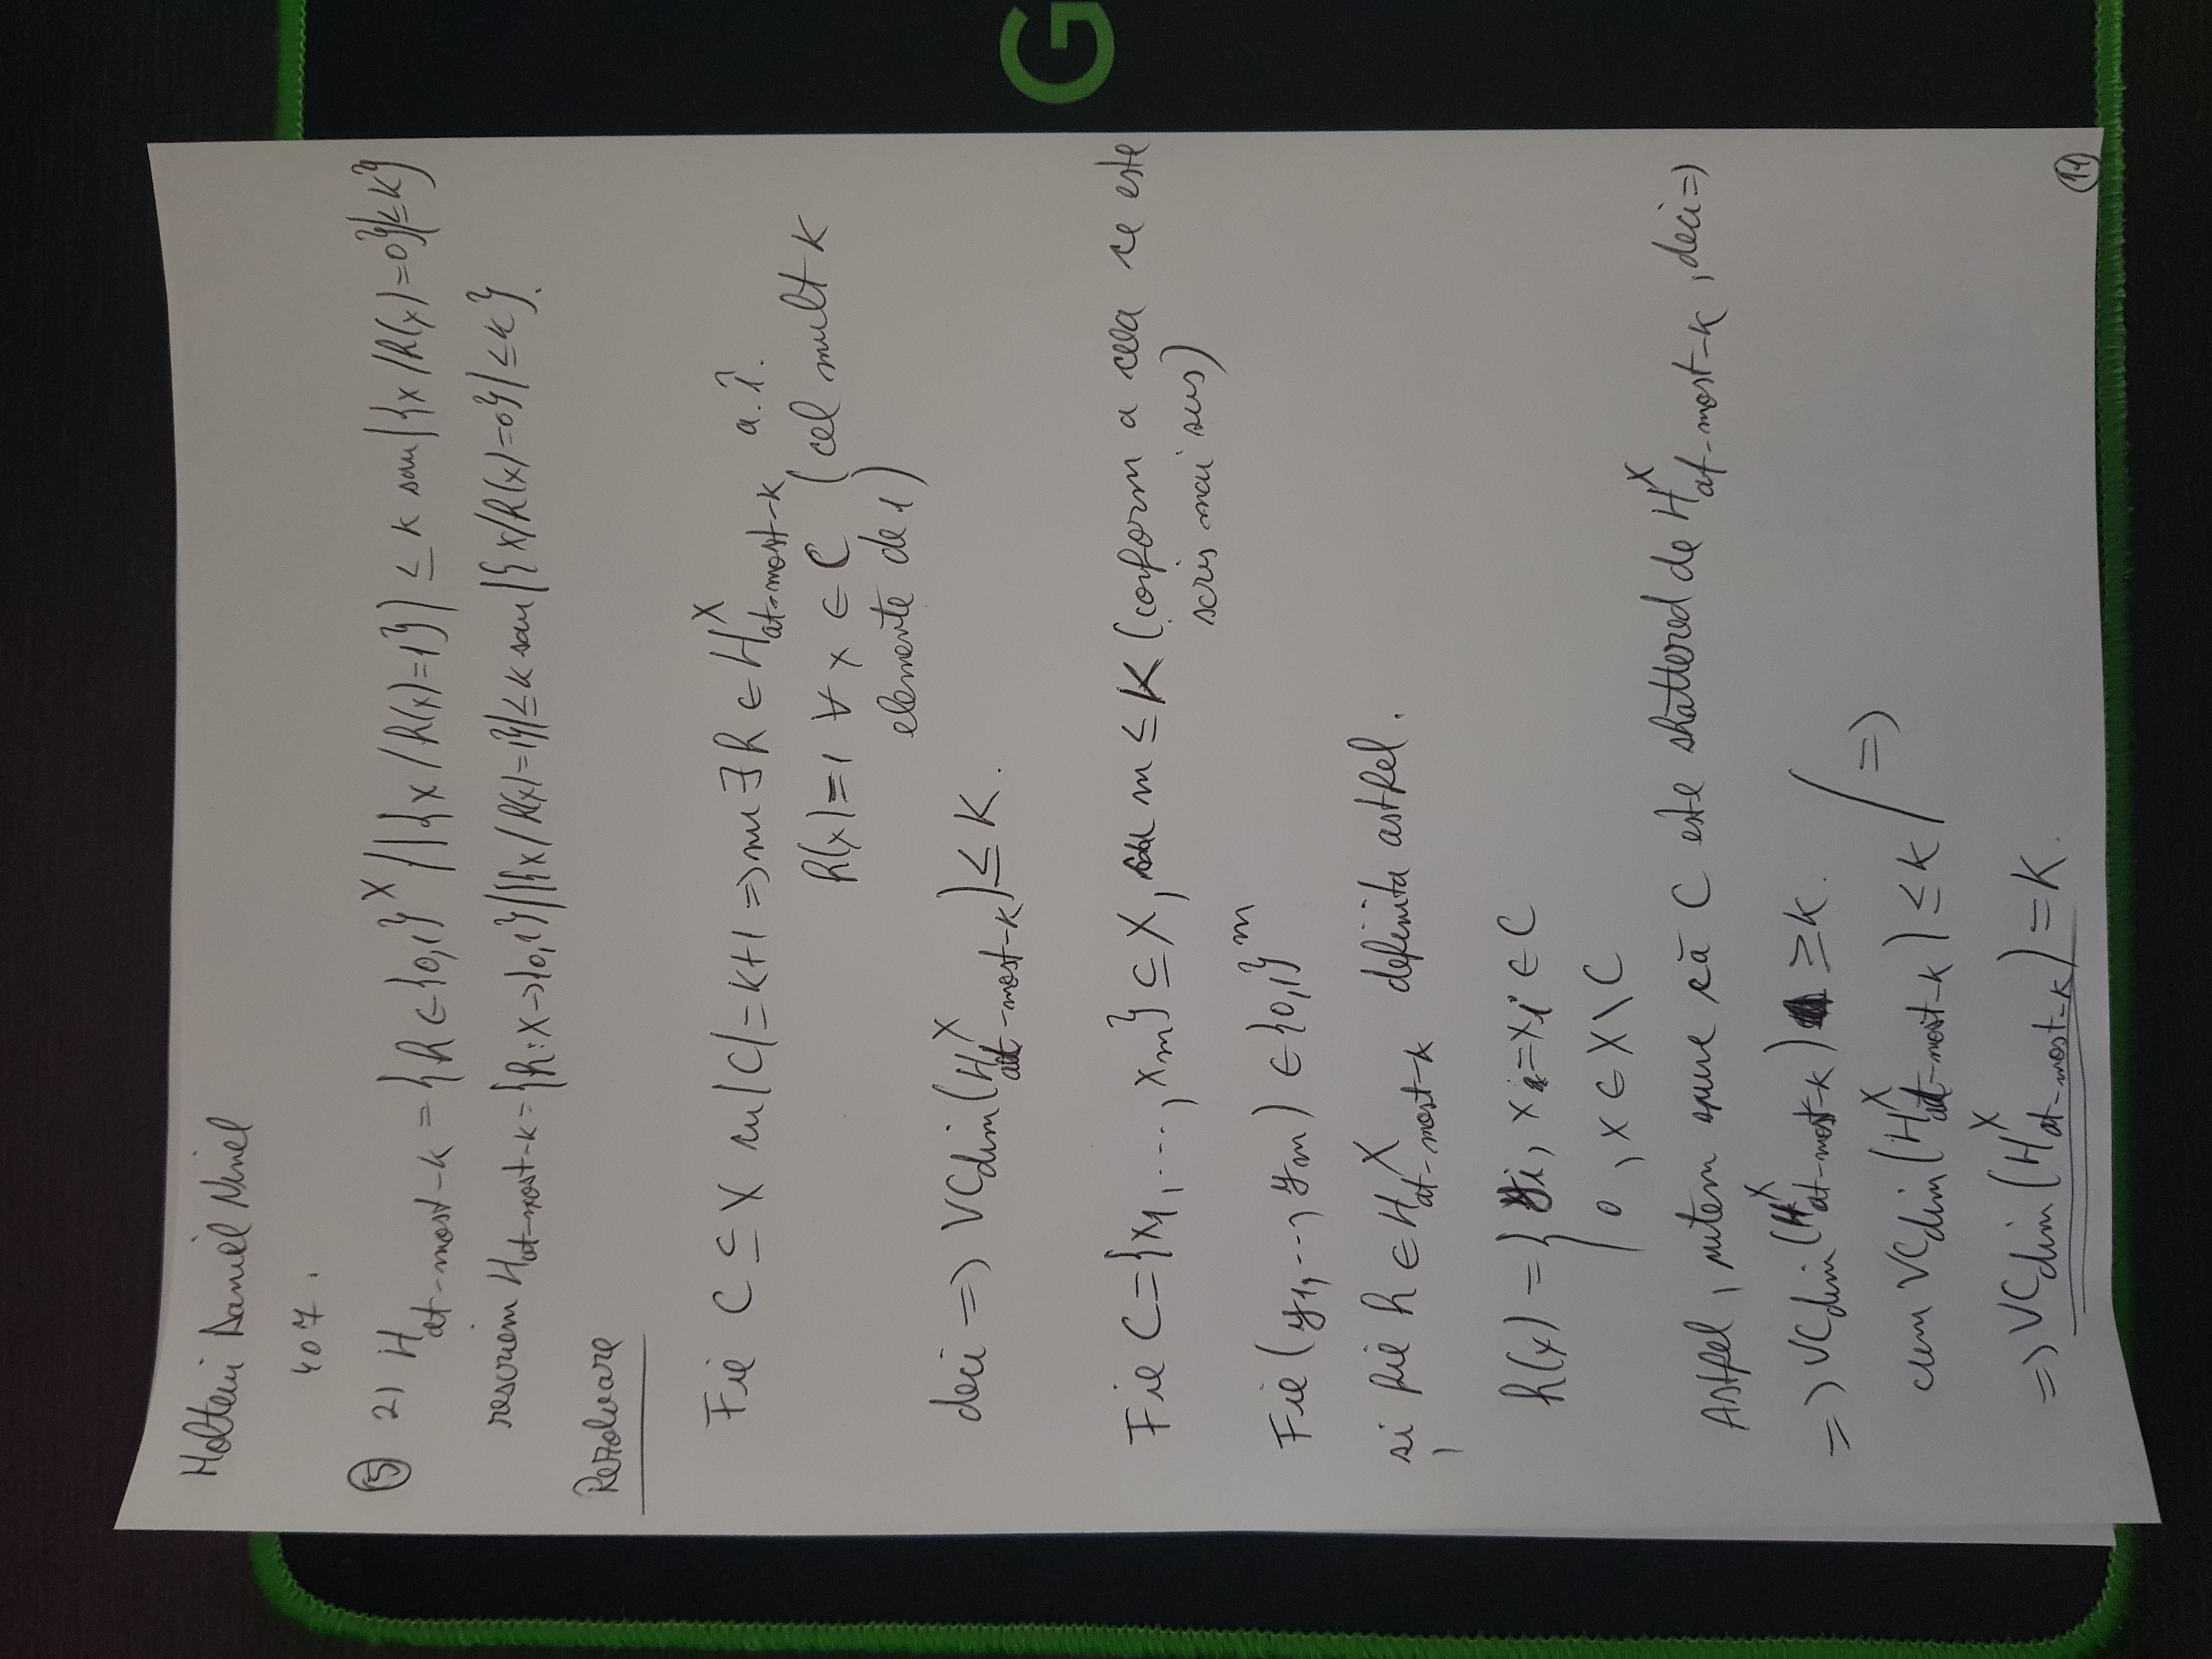 Molteni Daniel Ninel
407.
⑤ 2) H_at-most-k = {h ∈ {0,1}^X / |{x / h(x)=1}| ≤ k sau |{x / h(x)=0}| ≤ k}
rescriem H_at-most-k = {h: X → {0,1} / |{x / h(x)=1}| ≤ k sau |{x / h(x)=0}| ≤ k}.
Rezolvare
Fie C ⊆ X cu |C| = k+1 => nu ∃ h ∈ H^X_at-most-k a.î.
h(x)=1 ∀ x ∈ C (cel mult k
elemente de 1)
deci => VCdim(H^X_at-most-k) ≤ K.
Fie C={x₁, ..., xₘ} ⊆ X, cu m ≤ K (conform a ceea ce este
scris mai sus)
Fie (y₁, .., yₘ) ∈ {0,1}^m
și fie h ∈ H^X_at-most-k definita astfel.
h(x) = { yᵢ, xᵢ=xᵢ ∈ C
0, x ∈ X \ C
Astfel, putem spune că C este shattered de H^X_at-most-k, deci =>
=> VCdim(H^X_at-most-k) ≥ k.
cum VCdim(H^X_at-most-k) ≤ k / =>
=> VCdim(H^X_at-most-k) = K.
⑪
G